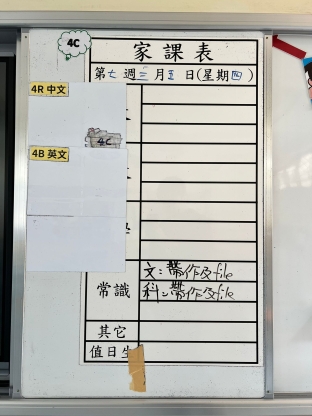 4C
家課表
第七週三月五日(星期四)
4R 中文
4C
4B 英文
文:帶作及file
常識
科:帶作及file
其它
值日生